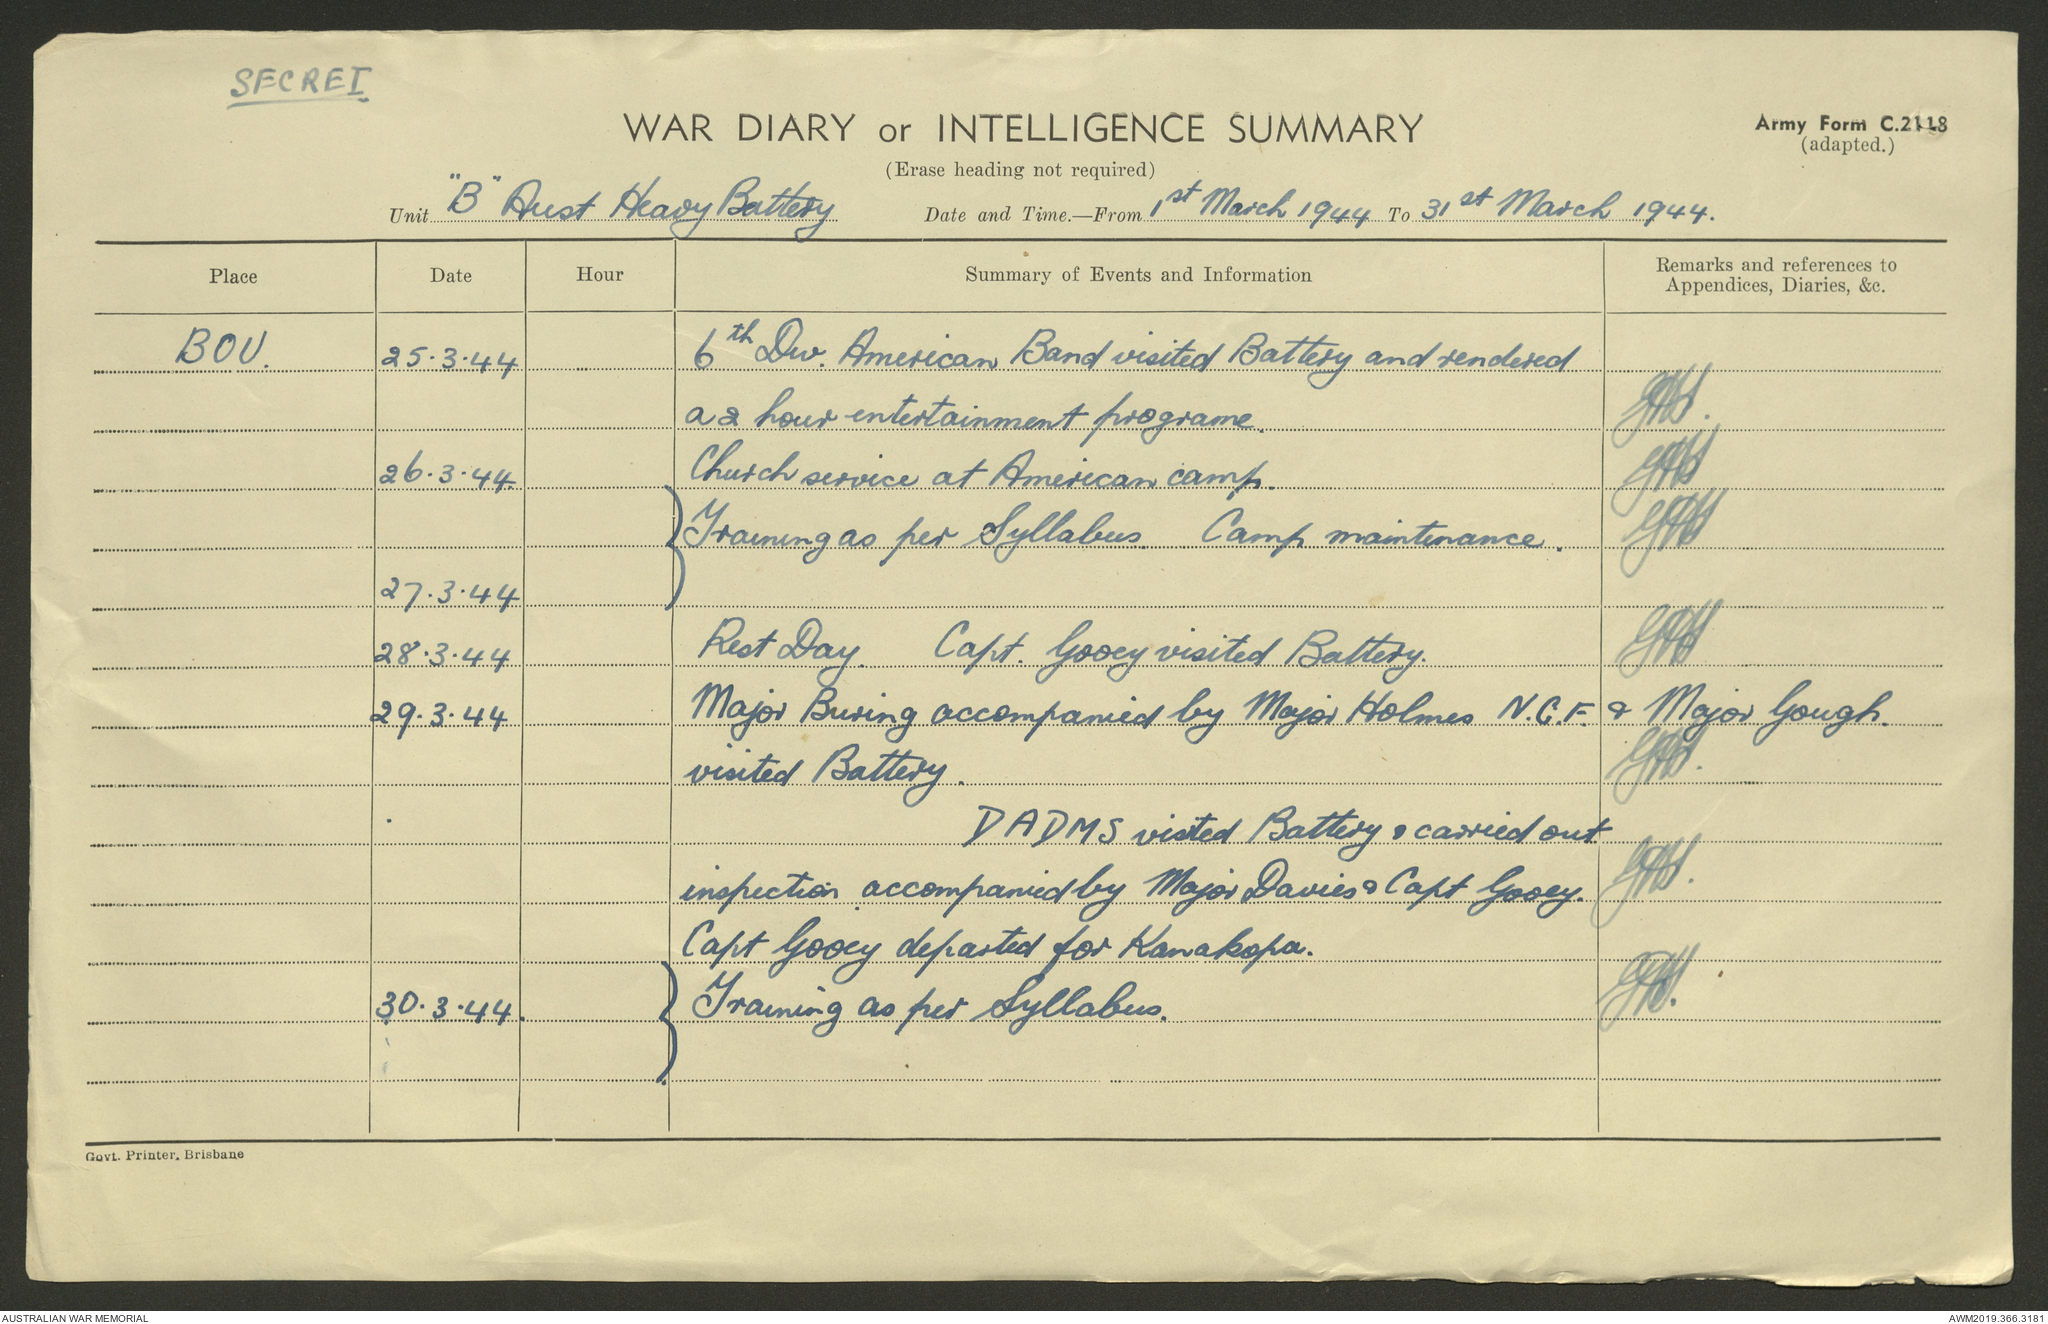 SECRET
WAR DIARY or INTELLIGENCE SUMMARY
Army Form C.2118
(adapted.)
(Erase heading not required)
Unit "B" Aust Heavy Battery Date and Time.—From 1st March 1944 To 31st March 1944.
Place Date Hour Summary of Events and Information Remarks and references to
Appendices, Diaries, &c.
BOU. 25.3.44 6th Div. American Band visited Battery and rendered
a 2 hour entertainment programe.
26.3.44. Church service at American camp.
Training as per Syllabus Camp maintenance.
27.3.44
28.3.44 Rest Day. Capt. Gooey visited Battery.
29.3.44 Major Buring accompanied by Major Holmes N.G.F. & Major Gough.
visited Battery.
DADMS visted Battery & carried out
inspection accompanied by Major Davies & Capt Gooey.
Capt Gooey departed for Kanakopa.
30.3.44. Training as per Syllabus.
Govt. Printer, Brisbane
AUSTRALIAN WAR MEMORIAL AWM2019.366.3181